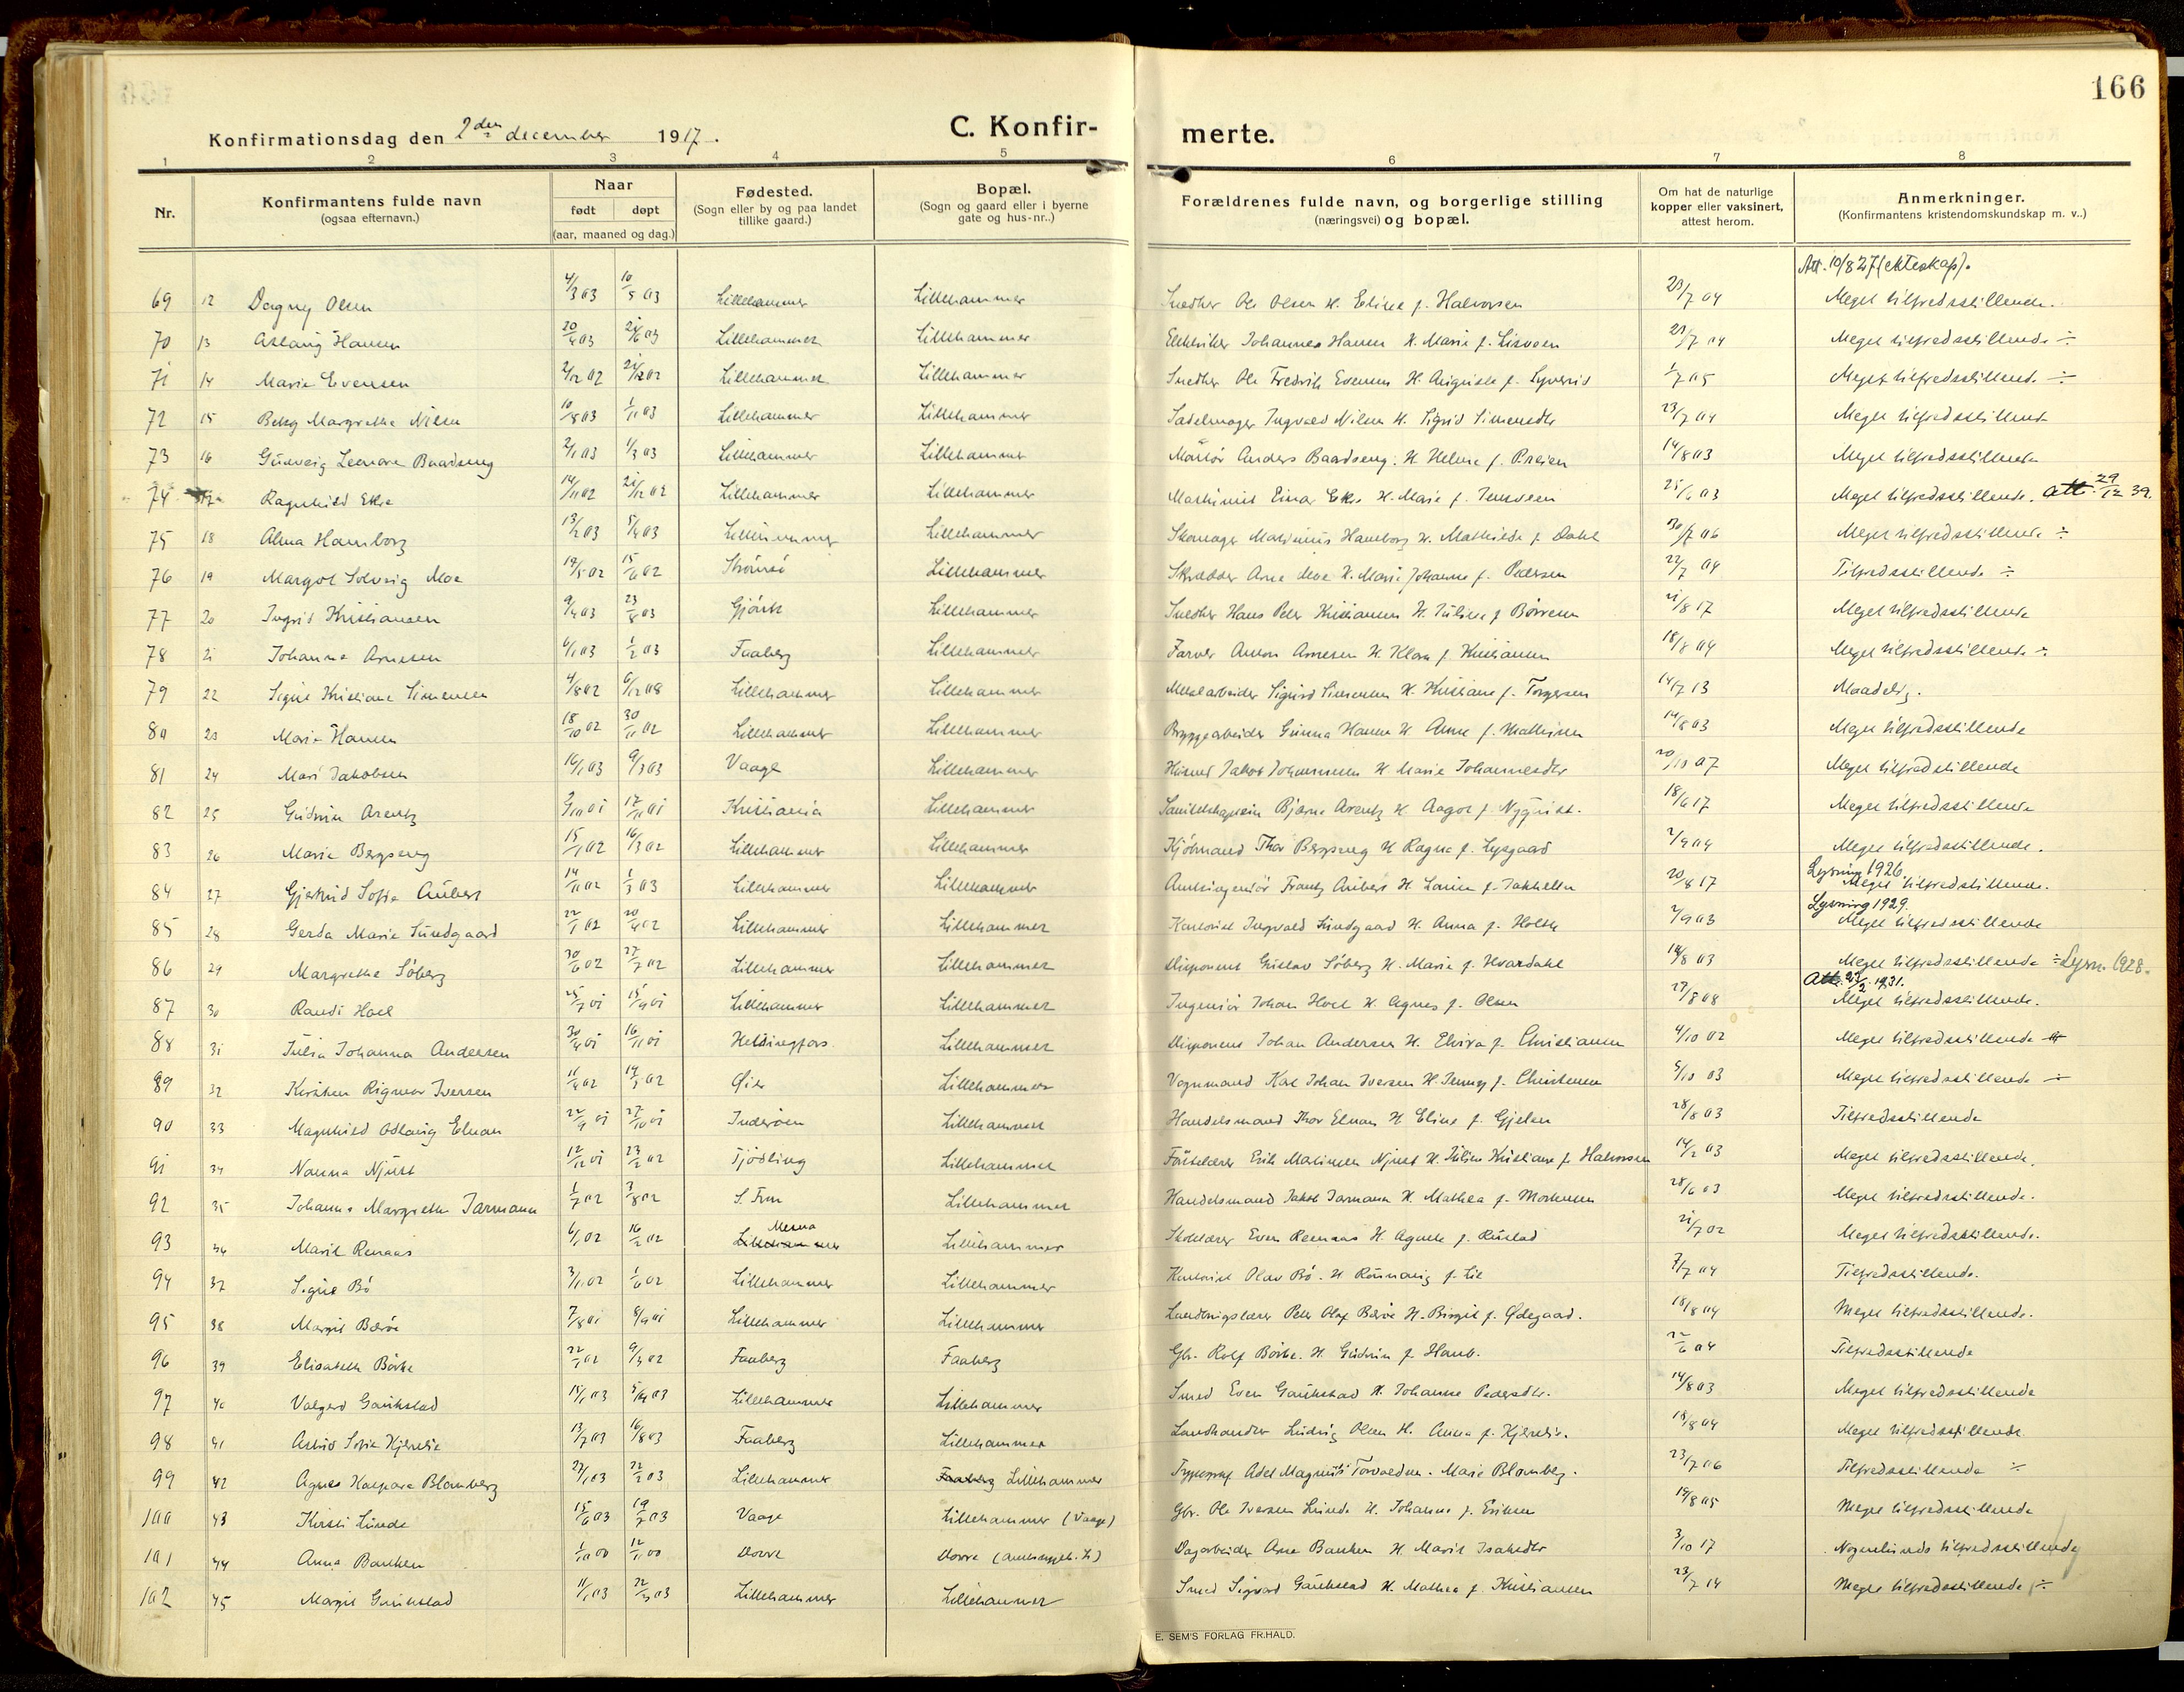 166
Konfirmationsdag den 2den december 1917.
C. Konfir-
merte.
1 2 3 4 5 6 7 8
Nr.
Konfirmantens fulde navn
(ogsaa efternavn.)
Naar
født døpt
(aar, maaned og dag.)
Fødested.
(Sogn eller by og paa landet
tillike gaard.)
Bopæl.
(Sogn og gaard eller i byerne
gate og hus-nr..)
Forældrenes fulde navn, og borgerlige stilling
(næringsvei) og bopæl.
Om hat de naturlige
kopper eller vaksinert,
attest herom.
Anmerkninger.
(Konfirmantens kristendomskundskap m. v..)
Att. 10/8 27 (ekteskap).
69 12 Dagny Olsen 4/3 03 10/5 03 Lillehammer Lillehammer Snedker Ole Olsen H. Eline f. Halvorsen 23/7 04 Meget tilfredsstillende.
70 13 Aslaug Hansen 20/4 03 Lillehammer Lillehammer Elektriker Johannes Hansen H. Marie f. 23/7 04 Meget tilfredsstillende ÷
71 14 Marie Evensen 2/12 02 Lillehammer Lillehammer Snedker Ole Fredrik Evensen H. Auguste f. 1/7 05 Meget tilfredsstillende ÷
72 15 Betsy Margrethe Nilsen 10/8 03 1/11 03 Lillehammer Lillehammer Sadelmager Ingvald Nilsen H. Sigrid Simensdtr 23/7 04 Meget tilfredsstillende
73 16 Gunveig Leonore Baadseng 2/1 03 1/3 03 Lillehammer Lillehammer Anders Baadseng. H. Helene f. 14/8 03 Meget tilfredsstillende
74 Ragnhild Ekre 14/11 02 Lillehammer Lillehammer Maskinist Einar Ekre H. Marie f. 25/6 03 Meget tilfredsstillende. Att. 29/12 39.
75 18 Alma Hamborg 13/2 03 5/4 03 Lillehammer Lillehammer Skomager Hamborg H. Mathilde f. Dahl 30/7 06 Meget tilfredsstillende ÷
76 19 Margot Solveig Moe 19/5 02 15/6 02 Strømsø Lillehammer Skrædder Arne Moe H. Marie Johanne f. Pedersen 22/7 04 Tilfredsstillende ÷
77 20 Ingrid Kristiansen 9/4 03 23/8 03 Gjøvik Lillehammer Snedker Hans Peter Kristiansen H. Juliane f. 21/8 17 Meget tilfredsstillende
78 21 Johanne Arnesen 6/1 03 1/2 03 Faaberg Lillehammer Farver Anton Arnesen H. Klara f. Kristiansen 18/8 04 Meget tilfredsstillende ÷
79 22 Signe Kristiane Simensen 4/8 02 Lillehammer Lillehammer Sigurd Simensen H. Kristiane f. Torgersen 14/7 13 Maadelig.
80 23 Marie Hansen 18/10 02 30/11 02 Lillehammer Lillehammer Bryggearbeider Gunnar Hansen H. Anne f. Mathisen 14/8 03 Meget tilfredsstillende
81 24 Mari Jakobsen 16/1 03 9/3 03 Vaage Lillehammer Husmd Jakob Johannessen H. Marie Johannesdtr 20/10 07 Meget tilfredsstillende
82 25 Gudrun Arentz 17/11 01 Kristiania Lillehammer Bjarne Arentz H. Aagot f. Nyquist. 18/6 17 Meget tilfredsstillende
83 26 Marie Bergseng 15/1 02 16/3 02 Lillehammer Lillehammer Kjøbmand Thor Bergseng H. Ragna f. Lysgaard 2/9 04 Meget tilfredsstillende.
Lysning 1926.
84 27 Gjertrud Sofie Aubert 14/11 02 1/3 03 Lillehammer Lillehammer Amtsingeniør Frantz Aubert H. Louise f. 20/8 17 Meget tilfredsstillende.
Lysning 1929.
85 28 Gerda Marie Sundgaard 22/1 02 20/4 02 Lillehammer Lillehammer Kontorist Ingvald Sundgaard H. Anna f. Holthe 2/9 03 Meget tilfredsstillende
86 29 Margrethe Søberg 30/6 02 27/7 02 Lillehammer Lillehammer Disponent Gustav Søberg H. Marie f. Hvardahl 14/8 03 Meget tilfredsstillende ÷ Lysn. 1928.
Att. 1931.
87 30 Randi Hoel 25/7 01 15/9 01 Lillehammer Lillehammer Ingeniør Johan Hoel H. Agnes f. Olsen 27/8 08 Meget tilfredsstillende.
88 31 Julia Johanna Andersen 30/4 01 16/11 01 Helsingfors Lillehammer Disponent Johan Andersen H. Elvira f. Christiansen 4/10 02 Meget tilfredsstillende
89 32 Kirsten Rigmor Iversen 11/4 02 Øier Lillehammer Vognmand Karl Johan Iversen H. Jenny f. Christensen 5/10 03 Meget tilfredsstillende ÷
90 33 Magnhild Aslaug Elnan 22/9 01 27/10 01 Inderøen Lillehammer Handelsmand Thor Elnan H. Eline f. Gjelsen 28/8 03 Tilfredsstillende
91 34 Nanna Njust 12/12 01 23/2 02 Tjødling Lillehammer Erik Matinsen Njust H. Juline Kristiane f. Halvorsen 14/2 03 Meget tilfredsstillende.
92 35 Johanne Margrethe Jarmann 1/7 02 3/8 02 S. Fron Lillehammer Handelsmand Jakob Jarmann H. Mathea f. 28/6 03 Meget tilfredsstillende.
Mesna
93 36 Marit Rønaas 6/1 02 16/2 02 Lillehammer Lillehammer Skolelærer Even H. Agnethe f. Rustad 21/7 02 Meget tilfredsstillende.
94 37 Signe Bø 3/1 02 1/6 02 Lillehammer Lillehammer Kontorist Olav Bø. H. Rønnaug f. Lie 7/7 04 Tilfredsstillende.
95 38 Margit Barøe 7/8 01 8/9 01 Lillehammer Lillehammer Landbrugslærer Peter Olaf H. Birgit f. Ødegaard. 18/8 04 Meget tilfredsstillende.
96 39 Elisabeth Børke 22/1 02 9/3 02 Faaberg Faaberg Gbr. Rolf Børke. H. Gudrun f. 22/6 04 Tilfredsstillende
97 40 Valgerd Gaukstad 15/1 03 5/4 03 Lillehammer Lillehammer Smed Even Gaukstad H. Johanne Pedersdtr. 14/8 03 Meget tilfredsstillende
98 41 Astrid Sofie Kjærslie 13/7 03 16/8 03 Faaberg Lillehammer Landhandler Ludvig Olsen H. Anna f. 18/8 04 Meget tilfredsstillende
99 42 Agnes Kaspara Blomberg 27/1 03 22/2 03 Lillehammer Faaberg Lillehammer Typograf Adel Magnus Torvaldsen. Marie Blomberg. 23/7 06 Tilfredsstillende ÷
100 43 Kirsti Lunde 15/6 03 19/7 03 Vaage Lillehammer (Vaage) Gbr. Ole Iversen Lunde H. Johanne f. Eriksen 19/8 05 Meget tilfredsstillende
101 44 Anna Banken 1/10 00 12/11 00 Dovre Dovre Dagarbeider Arne Banken H. Marit Isaksdtr 3/10 17 Nogenlunde tilfredsstillende
102 45 Margit Gaukstad 11/1 03 Lillehammer Lillehammer Smed Sigvard Gaukstad H. Mathea f. Kristiansen 23/7 14 Meget tilfredsstillende ÷
E. SEM'S FORLAG FR.HALD.